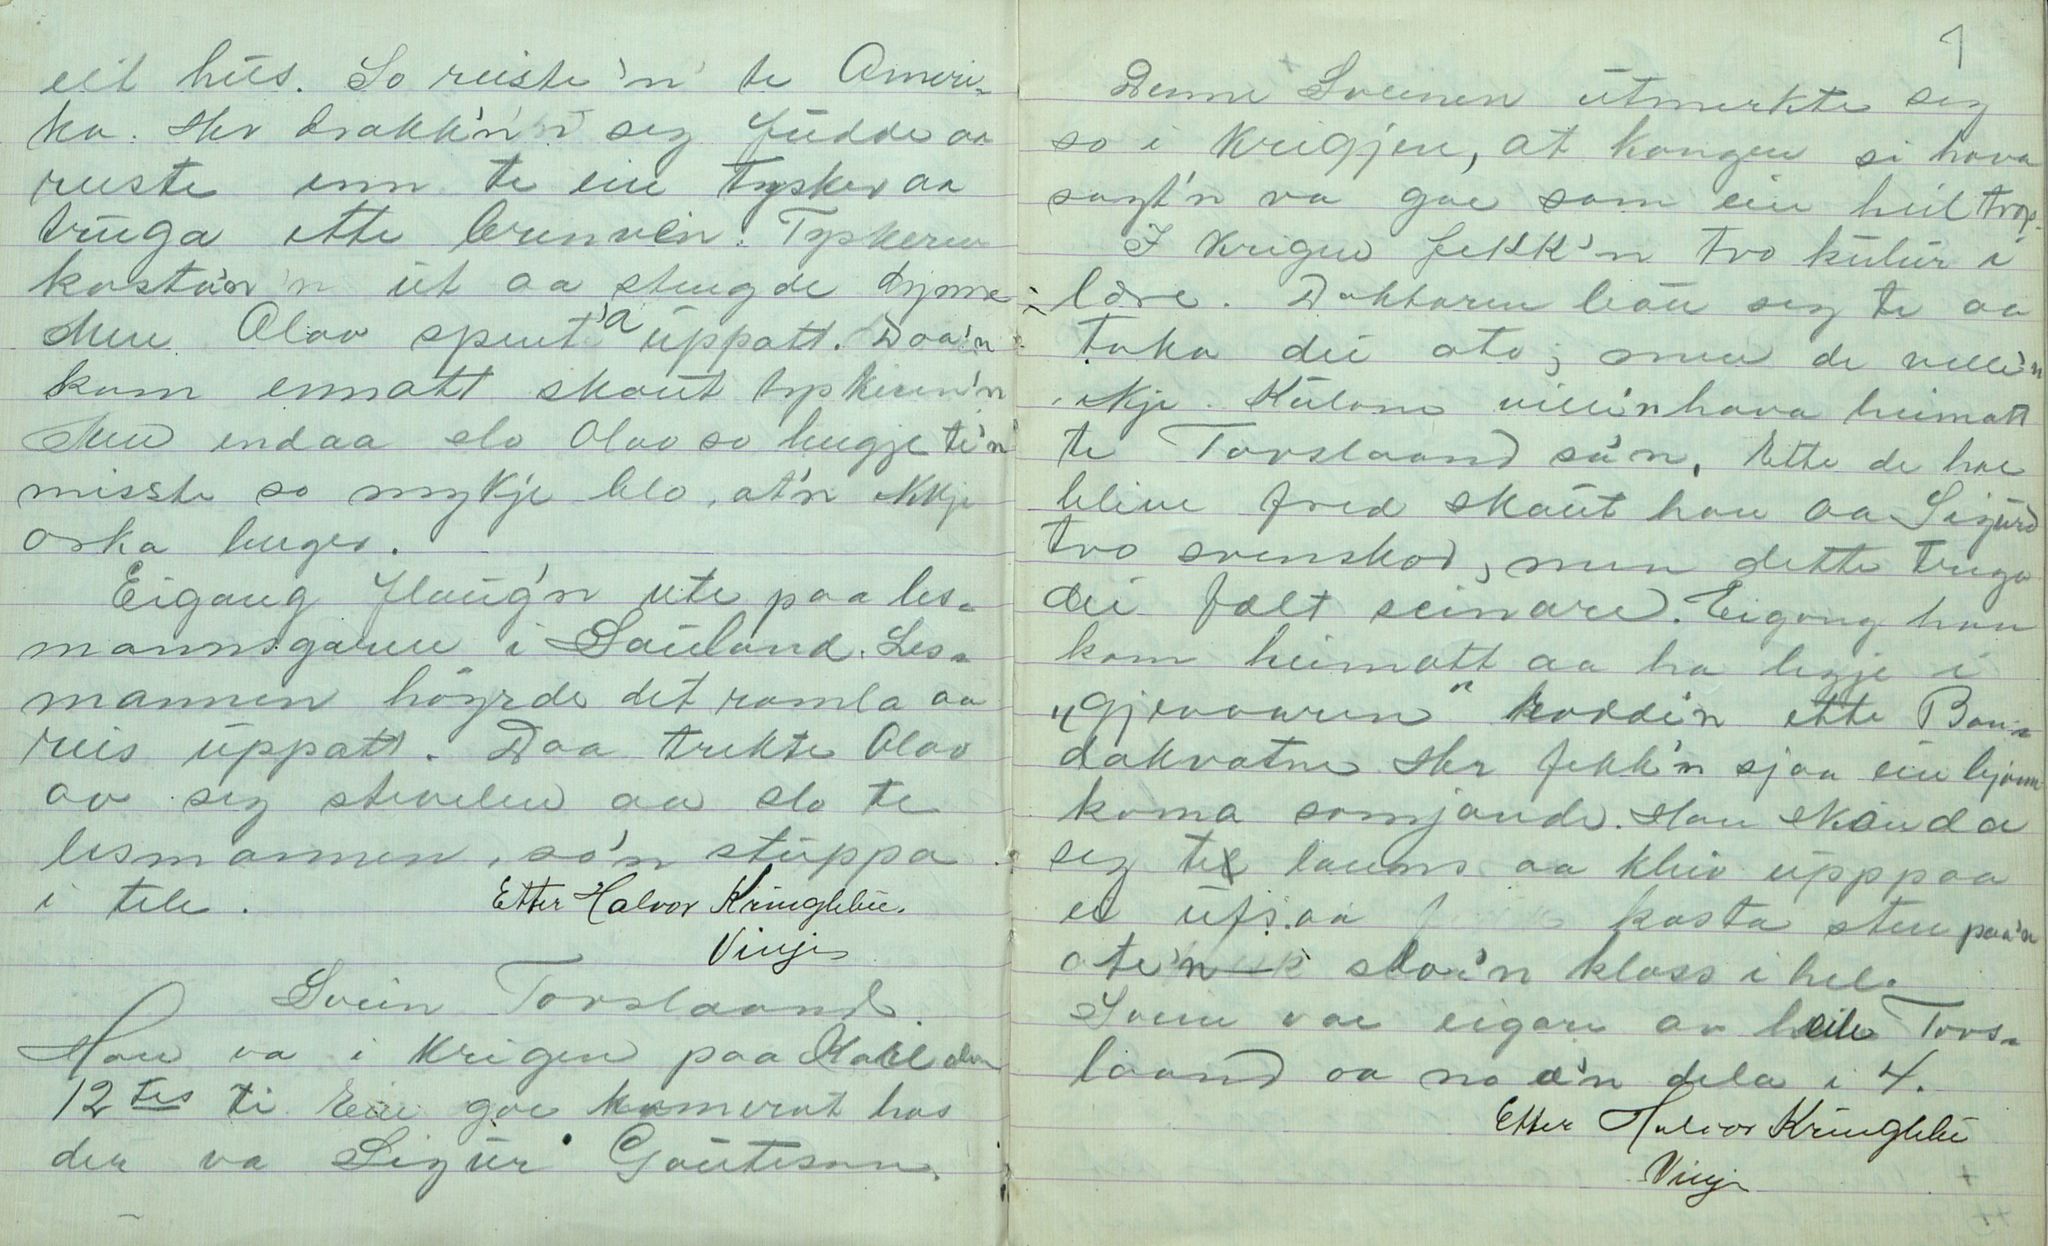 eit hus. So reiste'n te Ameri-
ka. Her drakk'n seg fudde aa
reiste inn te ein tyskar aa
truga ette brenvin. Tyskeren
kasta'n ut aa stengde dynne
Men Olav spent'a uppatt. Daa'n
kom ennatt skaut tyskeren'n
Men endaa slo Olav so lengje te'n
misste so mykje blo, at'n ikkje
orka lenger.
Eigang flaug'n ute paa les-
mannsgaren i Sauland. Les-
mannen höyrde det ramla aa
reis uppatt. Daa trekte Olav
av seg stevelen aa slo te
lesmannen, so'n stuppa
i tele.
Etter Halvor Kringlebu.
Vinje
Svein Torslaand.
Han va i Krigen paa Karl den
12tes ti Ein goe kamerat hos
der va Sigur Gauteson.
1
Denne Sveinen utmerkte seg
so i Krigjen, at kongen si hava
sagt'n va goe som ein heil trop.
I Krigen fekk'n tvo kulur i
lære. Doktoren bau seg te aa
taka dei ato; men de ville'n
ikkje. Kulane ville'n hava heimatt
te Torslaand sa'n. Ette de hae
blive fred skaut han aa Sigurd
tvo svenskar, men dette truga
dei fælt seinare. Eigong han
kom heimatt aa ha legje i
"Gjevaaren" rodde'n ette Ban-
dakvatne Her fekk'n sjaa ein bjønn
koma somjande. Han skunda
seg te lanns aa kleiv upppaa
ei ufs aa kasta stein paa'n
ate'n slo'n klass i hel.
Svein var eigar av heile Tors-
laand aa no æ'n dela i 4.
Etter Halvor Kringlebu
Vinje